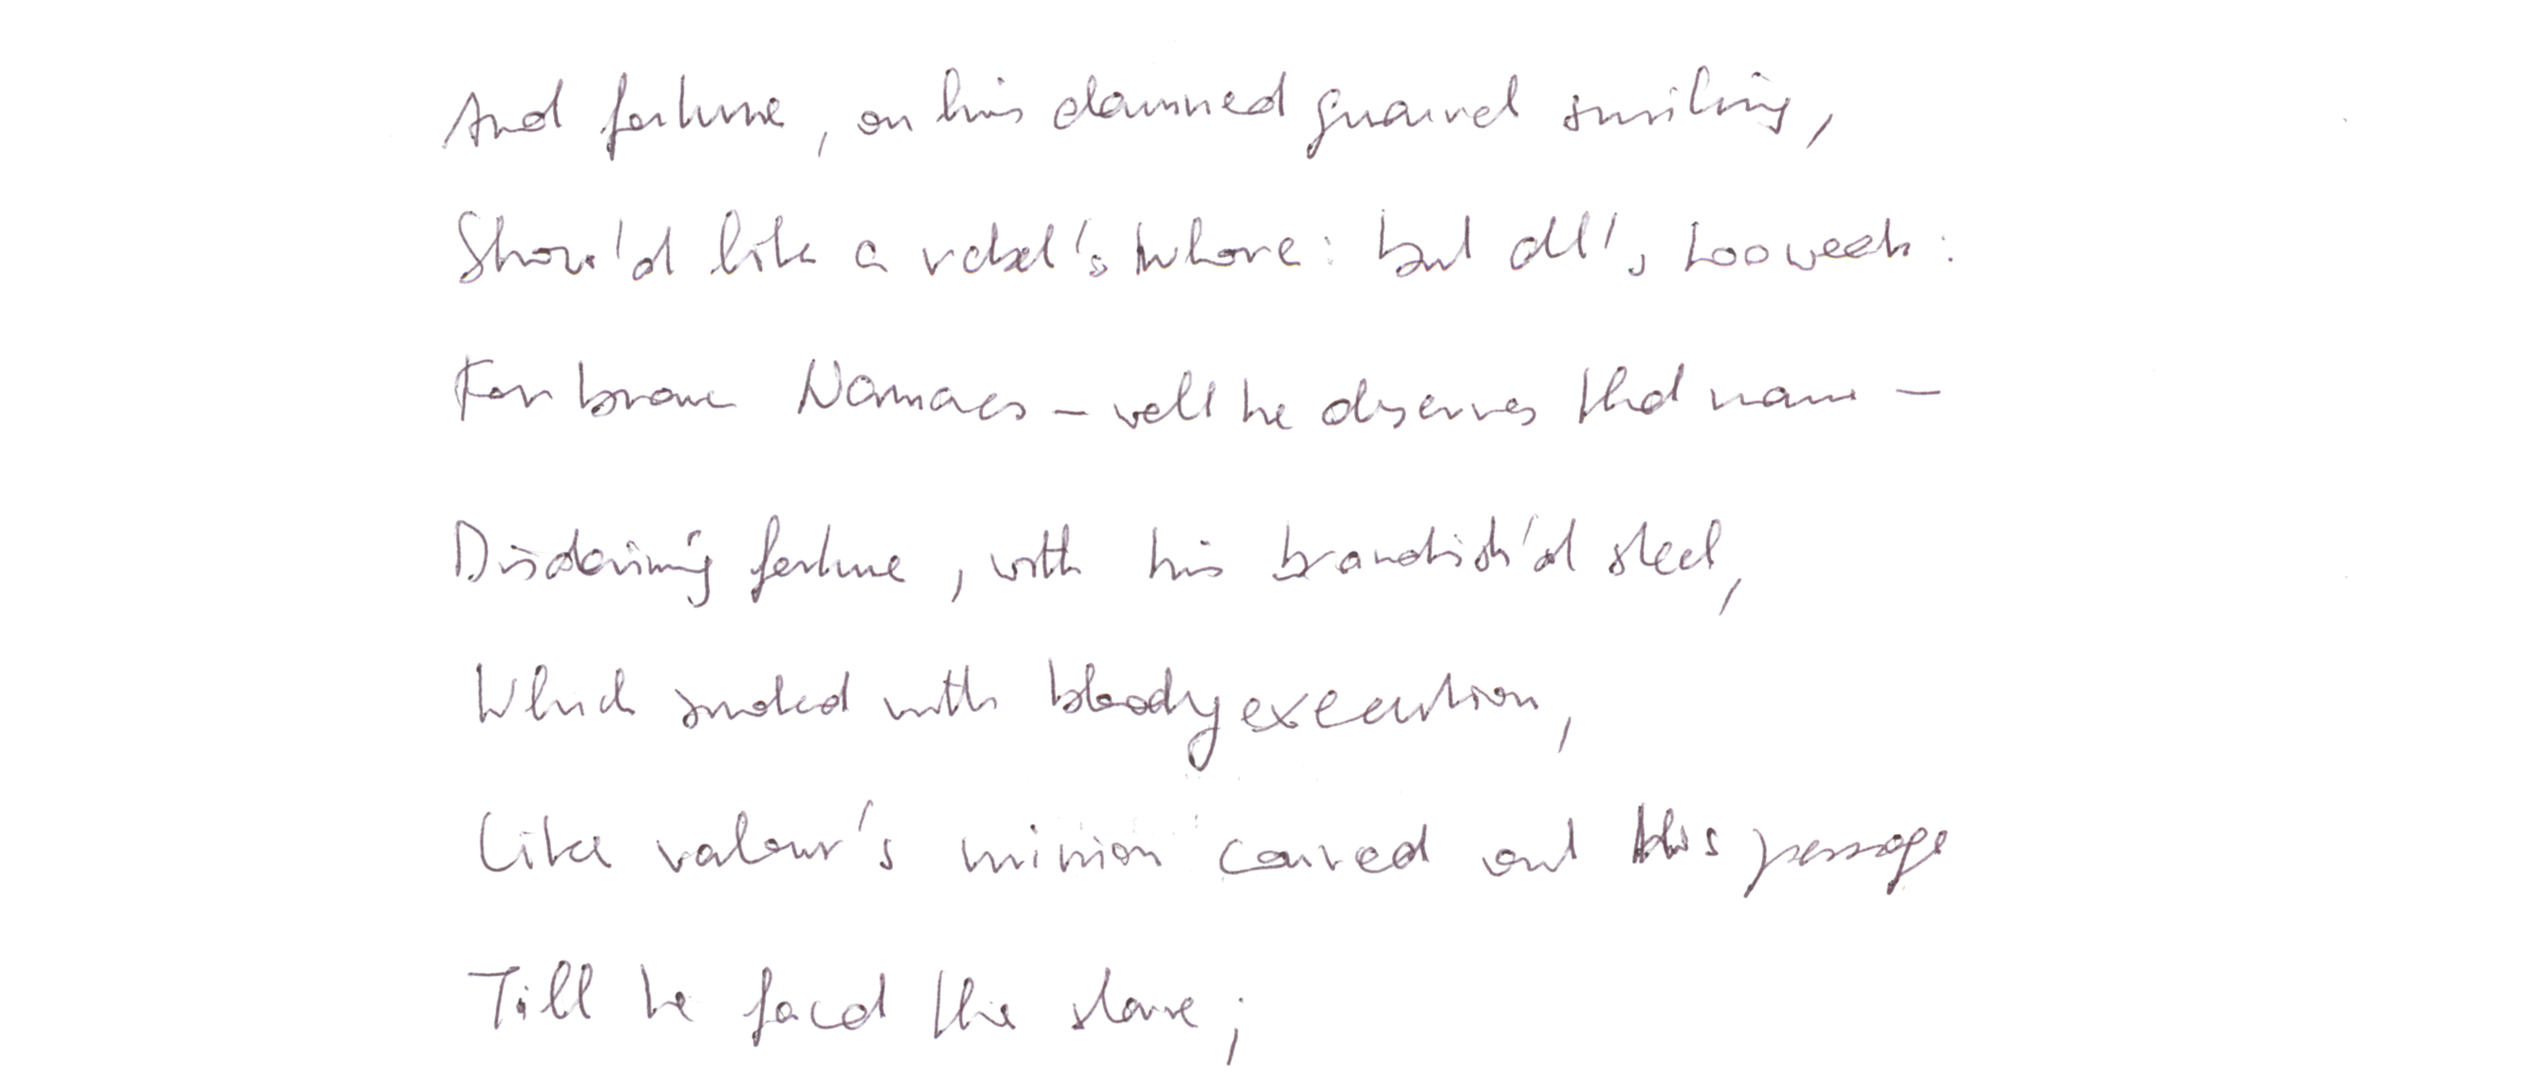 And fortune, on his damned quarrel smiling,
Show'd like a rebel's whore: but all's too weak:
For brave Nomaes – well he deserves that name –
Disdaining fortune, with his brandish'd steel,
Which smoked with bloody execution,
Like valour's minion carved out this passage
Till he faced the slave;